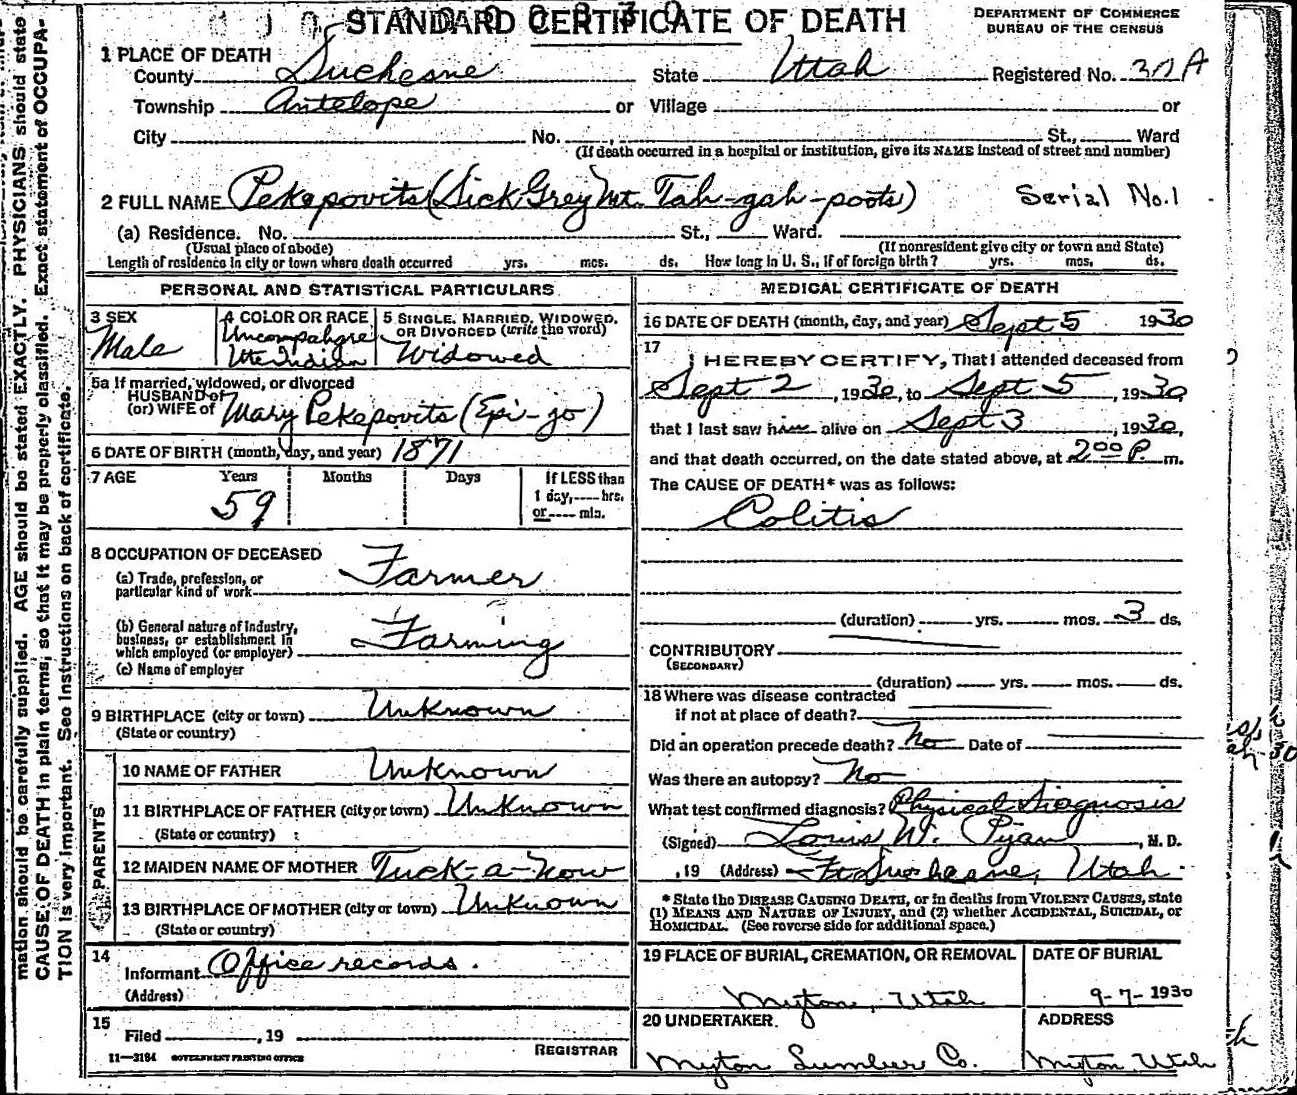 STANDARD CERTIFICATE OF DEATH
DEPARTMENT OF COMMERCE
BUREAU OF THE CENSUS
1 PLACE OF DEATH
County Duchesne State Utah Registered No.
Township Antelope or Village or
City No. , St., Ward
(If death occurred in a hospital or institution, give its NAME instead of street and number)
2 FULL NAME Pekepovits (Dick Grey Mt. Tah-gah-poots) Serial No. 1
(a) Residence. No. St., Ward.
(Usual place of abode) (If nonresident give city or town and State)
Length of residence in city or town where death occurred yrs. mos. ds. How long in U. S., if of foreign birth? yrs. mos. ds.
PERSONAL AND STATISTICAL PARTICULARS
3 SEX
Male
4 COLOR OR RACE
Uncompahgre
Ute Indian
5 SINGLE, MARRIED, WIDOWED,
OR DIVORCED (write the word)
Widowed
5a If married, widowed, or divorced
HUSBAND of
(or) WIFE of Mary Pekepovits (Epi-jo)
6 DATE OF BIRTH (month, day, and year) 1871
7 AGE Years Months Days If LESS than
1 day, hrs.
59 or min.
8 OCCUPATION OF DECEASED
(a) Trade, profession, or
particular kind of work Farmer
(b) General nature of industry,
business, or establishment in
which employed (or employer) Farming
(c) Name of employer
9 BIRTHPLACE (city or town) Unknown
(State or country)
PARENTS
10 NAME OF FATHER Unknown
11 BIRTHPLACE OF FATHER (city or town) Unknown
(State or country)
12 MAIDEN NAME OF MOTHER Tuck-a-now
13 BIRTHPLACE OF MOTHER (city or town) Unknown
(State or country)
14
Informant Office records.
(Address)
15
Filed , 19
REGISTRAR
11—3184 GOVERNMENT PRINTING OFFICE
MEDICAL CERTIFICATE OF DEATH
16 DATE OF DEATH (month, day, and year) Sept 5 1930
17
I HEREBY CERTIFY, That I attended deceased from
Sept 2, 1930, to Sept 5, 1930,
that I last saw him alive on Sept 3, 1930,
and that death occurred, on the date stated above, at 2:00 P. m.
The CAUSE OF DEATH* was as follows:
Colitis
(duration) yrs. mos. 3 ds.
CONTRIBUTORY
(SECONDARY)
(duration) yrs. mos. ds.
18 Where was disease contracted
if not at place of death?
Did an operation precede death? No Date of
Was there an autopsy? No
What test confirmed diagnosis? Physical Diagnosis
(Signed) Louis W. , M. D.
, 19 (Address) Ft. Duchesne, Utah.
* State the DISEASE CAUSING DEATH, or in deaths from VIOLENT CAUSES, state
(1) MEANS AND NATURE OF INJURY, and (2) whether ACCIDENTAL, SUICIDAL, or
HOMICIDAL. (See reverse side for additional space.)
19 PLACE OF BURIAL, CREMATION, OR REMOVAL DATE OF BURIAL
Myton, Utah 9-7-1930
20 UNDERTAKER ADDRESS
Myton Lumber Co. Myton, Utah
mation should be carefully supplied. AGE should be stated EXACTLY. PHYSICIANS should state
CAUSE OF DEATH in plain terms, so that it may be properly classified. Exact statement of OCCUPA-
TION is very important. See instructions on back of certificate.